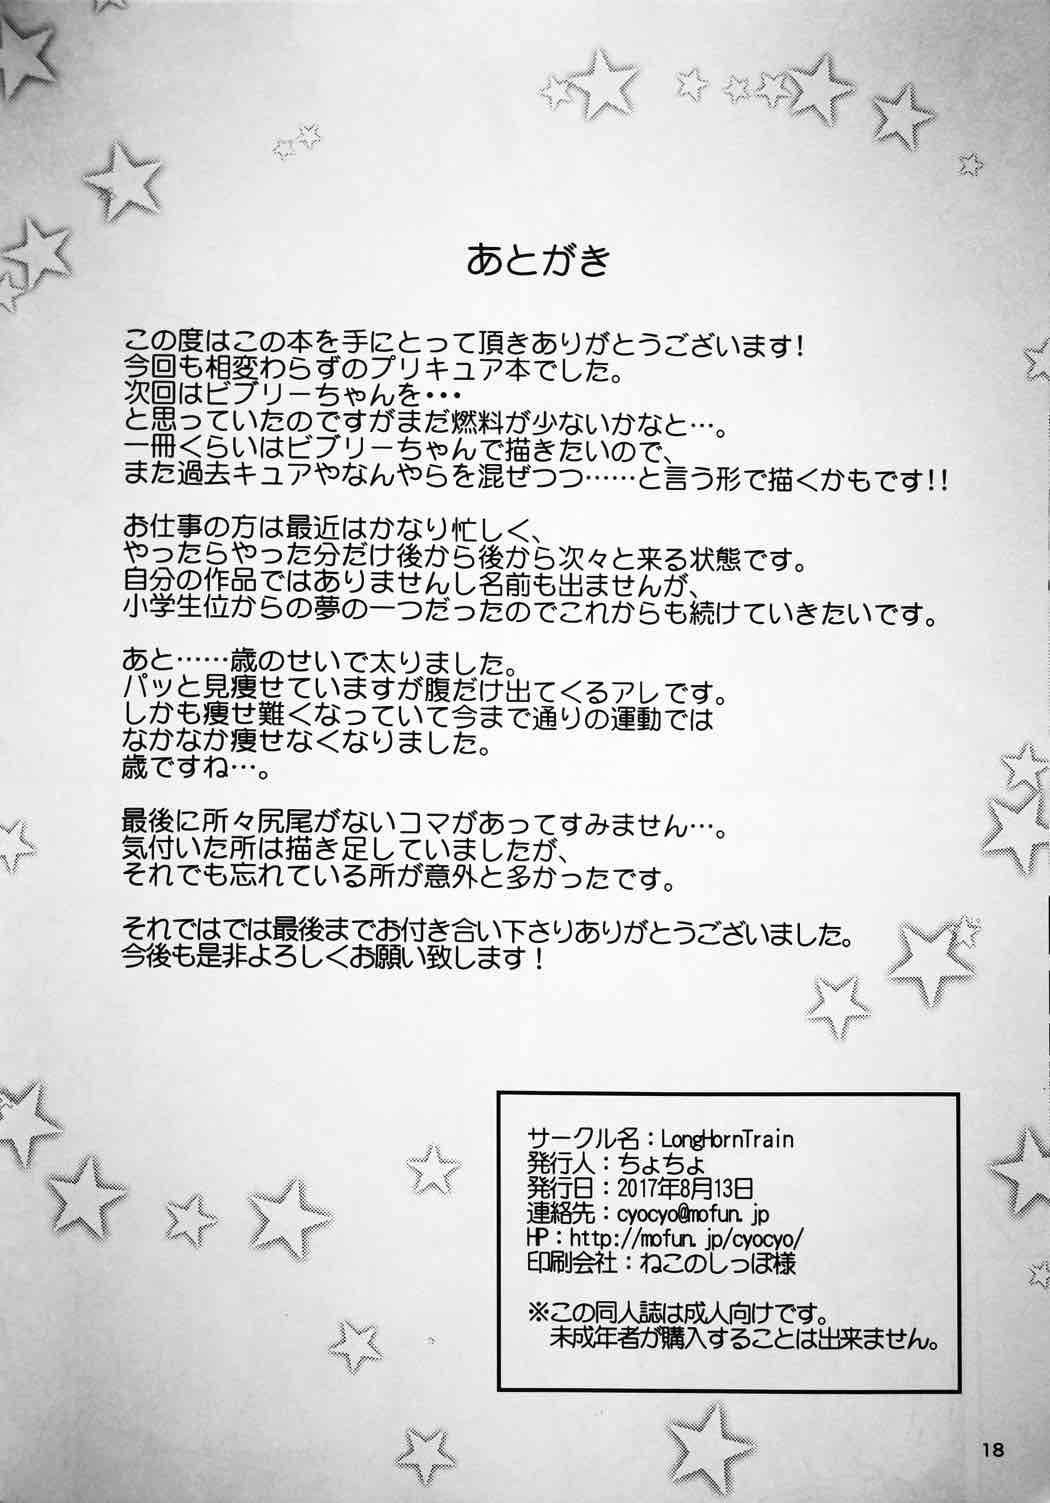 あとがき
この度はこの本を手にとって頂きありがとうございます!
今回も相変わらずのプリキュア本でした。
次回はビブリーちゃんを・・・
と思っていたのですがまだ燃料が少ないかなと…。
一冊くらいはビブリーちゃんで描きたいので、
また過去キュアやなんやらを混ぜつつ……と言う形で描くかもです!!
お仕事の方は最近はかなり忙しく、
やったらやった分だけ後から後から次々と来る状態です。
自分の作品ではありませんし名前も出ませんが、
小学生位からの夢の一つだったのでこれからも続けていきたいです。
あと……歳のせいで太りました。
パッと見痩せていますが腹だけ出てくるアレです。
しかも痩せ難くなっていて今まで通りの運動では
なかなか痩せなくなりました。
歳ですね…。
最後に所々尻尾がないコマがあってすみません…。
気付いた所は描き足していましたが、
それでも忘れている所が意外と多かったです。
それではでは最後までお付き合い下さりありがとうございました。
今後も是非よろしくお願い致します！
サークル名：LongHornTrain
発行人：ちょちょ
発行日：2017年8月13日
連絡先：cyocyo@mofun.jp
HP：http://mofun.jp/cyocyo/
印刷会社：ねこのしっぽ様
※この同人誌は成人向けです。
未成年者が購入することは出来ません。
18